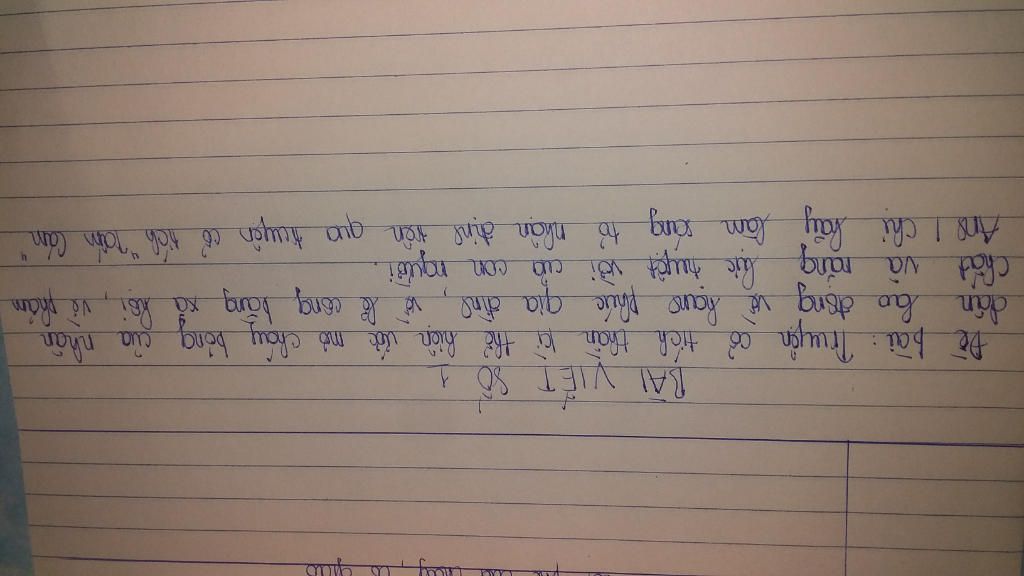 BÀI VIẾT SỐ 1
Đề bài: Truyện cổ tích thần kì thể hiện ước mơ cháy bỏng của nhân
dân lao động về hạnh phúc gia đình, về lẽ công bằng xã hội, về phẩm
chất và năng lực tuyệt vời của con người.
Anh / chị hãy làm sáng tỏ nhận định trên qua truyện cổ tích "Tấm Cám"